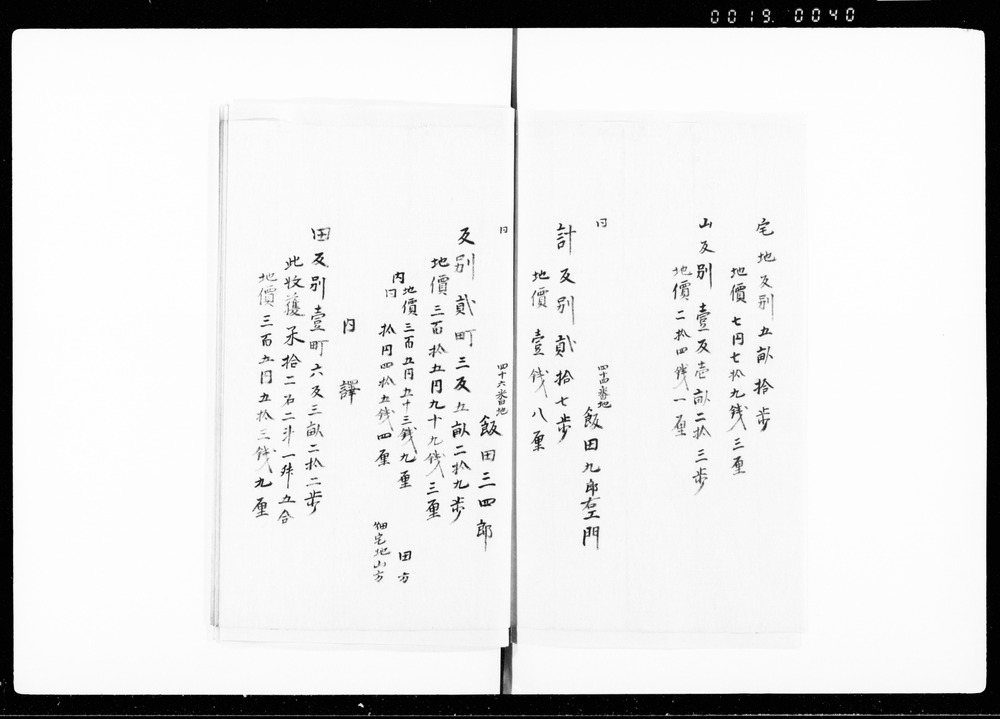 0019. 0040
宅地反別五畝拾歩
地價七円七拾九銭三厘
山反別壹反壱畝二拾三歩
地價二拾四銭一厘
同 四十四番地 飯田九郎左エ門
計反別貳拾七歩
地價壹銭八厘
同 四十六番地 飯田三四郎
反別貳町三反五畝二拾九歩
地價三百拾五円九十九銭三厘
内地價三百五円五十三銭九厘 田方
内円拾円四拾五銭四厘 畑宅地山方
内譯
田反別壹町六反三畝二拾二歩
此收獲米拾二石二斗一舛五合
地價三百五円五拾三銭九厘